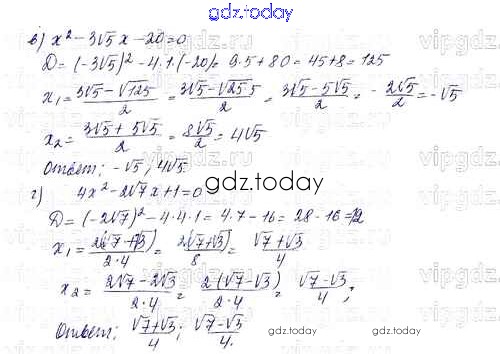 gdz.today
в) x² - 3√5 x - 20 = 0
D = (-3√5)² - 4·1·(-20) = 9·5 + 80 = 45 + 8 = 125
x₁ = (3√5 - √125)/2 = (3√5 - √25·5)/2 = (3√5 - 5√5)/2 = - 2√5/2 = -√5
x₂ = (3√5 + 5√5)/2 = 8√5/2 = 4√5
Ответ: -√5; 4√5.
gdz.today
г) 4x² - 2√7 x + 1 = 0
D = (-2√7)² - 4·4·1 = 4·7 - 16 = 28 - 16 = 12
x₁ = 2(√7 + √3)/(2·4) = 2(√7 + √3)/8 = (√7 + √3)/4
x₂ = (2√7 - 2√3)/(2·4) = 2(√7 - √3)/(2·4) = (√7 - √3)/4;
Ответ: (√7 + √3)/4; (√7 - √3)/4.
gdz.today